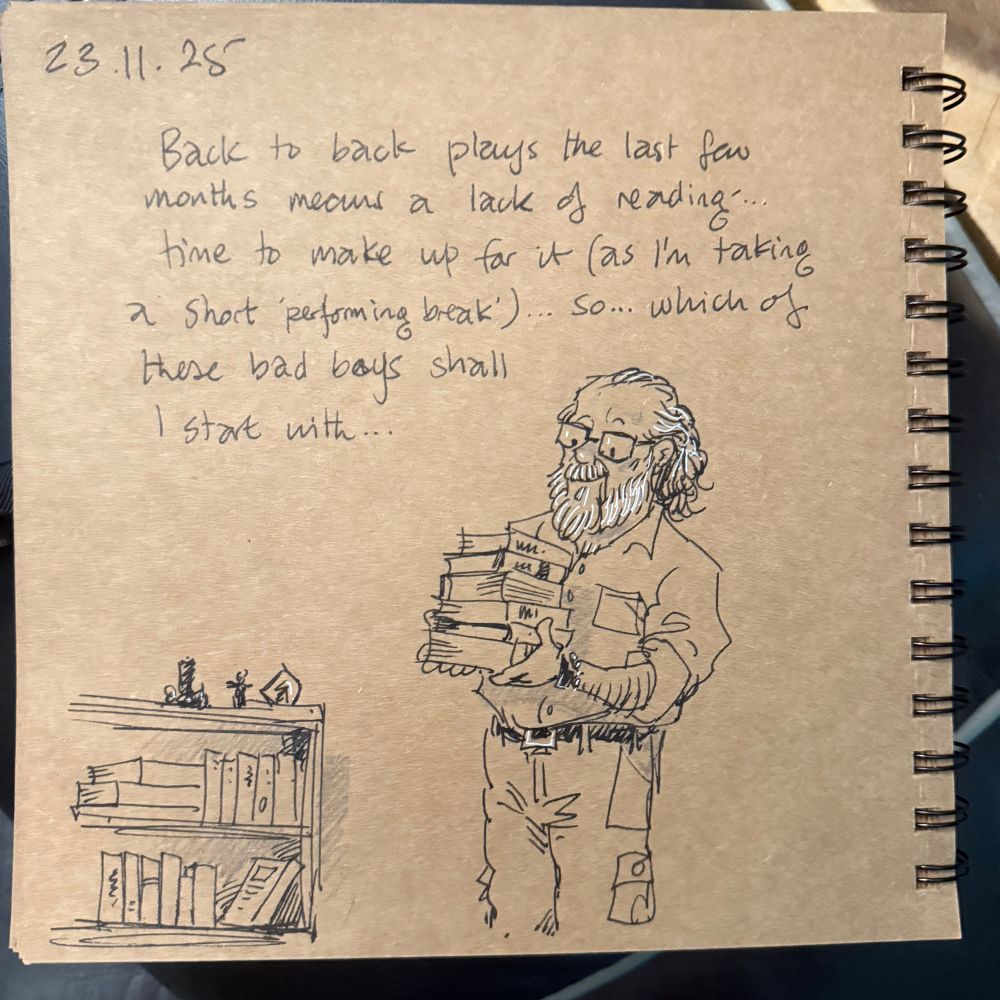 23.11.25
Back to back plays the last few
months means a lack of reading...
time to make up for it (as I'm taking
a short 'performing break')... so... which of
these bad boys shall
I start with...